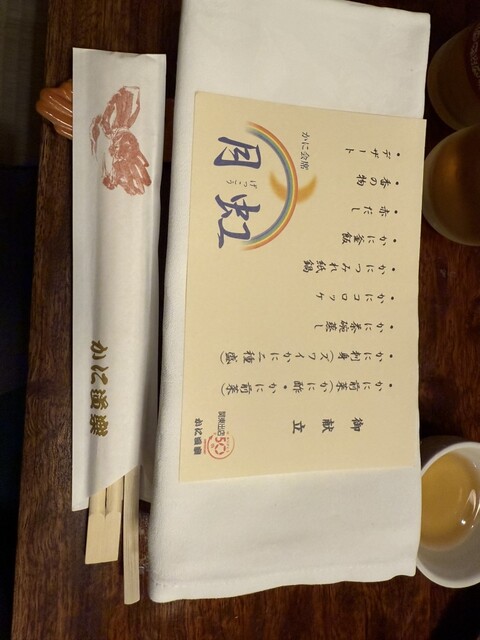 御献立
・かに前菜（かに酢・かに前菜）
・かに刺身（ズワイかに二種盛）
・かに茶碗蒸し
・かにコロッケ
・かにつみれ紙鍋
・かに釜飯
・赤だし
・香の物
・デザート
かに会席
月虹
げっこう
関東出店
50
かに道楽
かに道楽